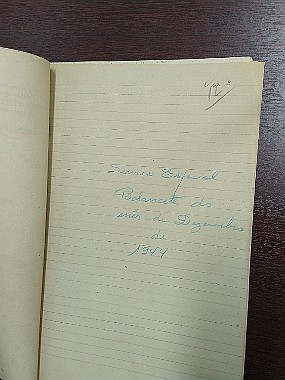 Serviço Especial
Balancete do
mês de Dezembro
de
1944